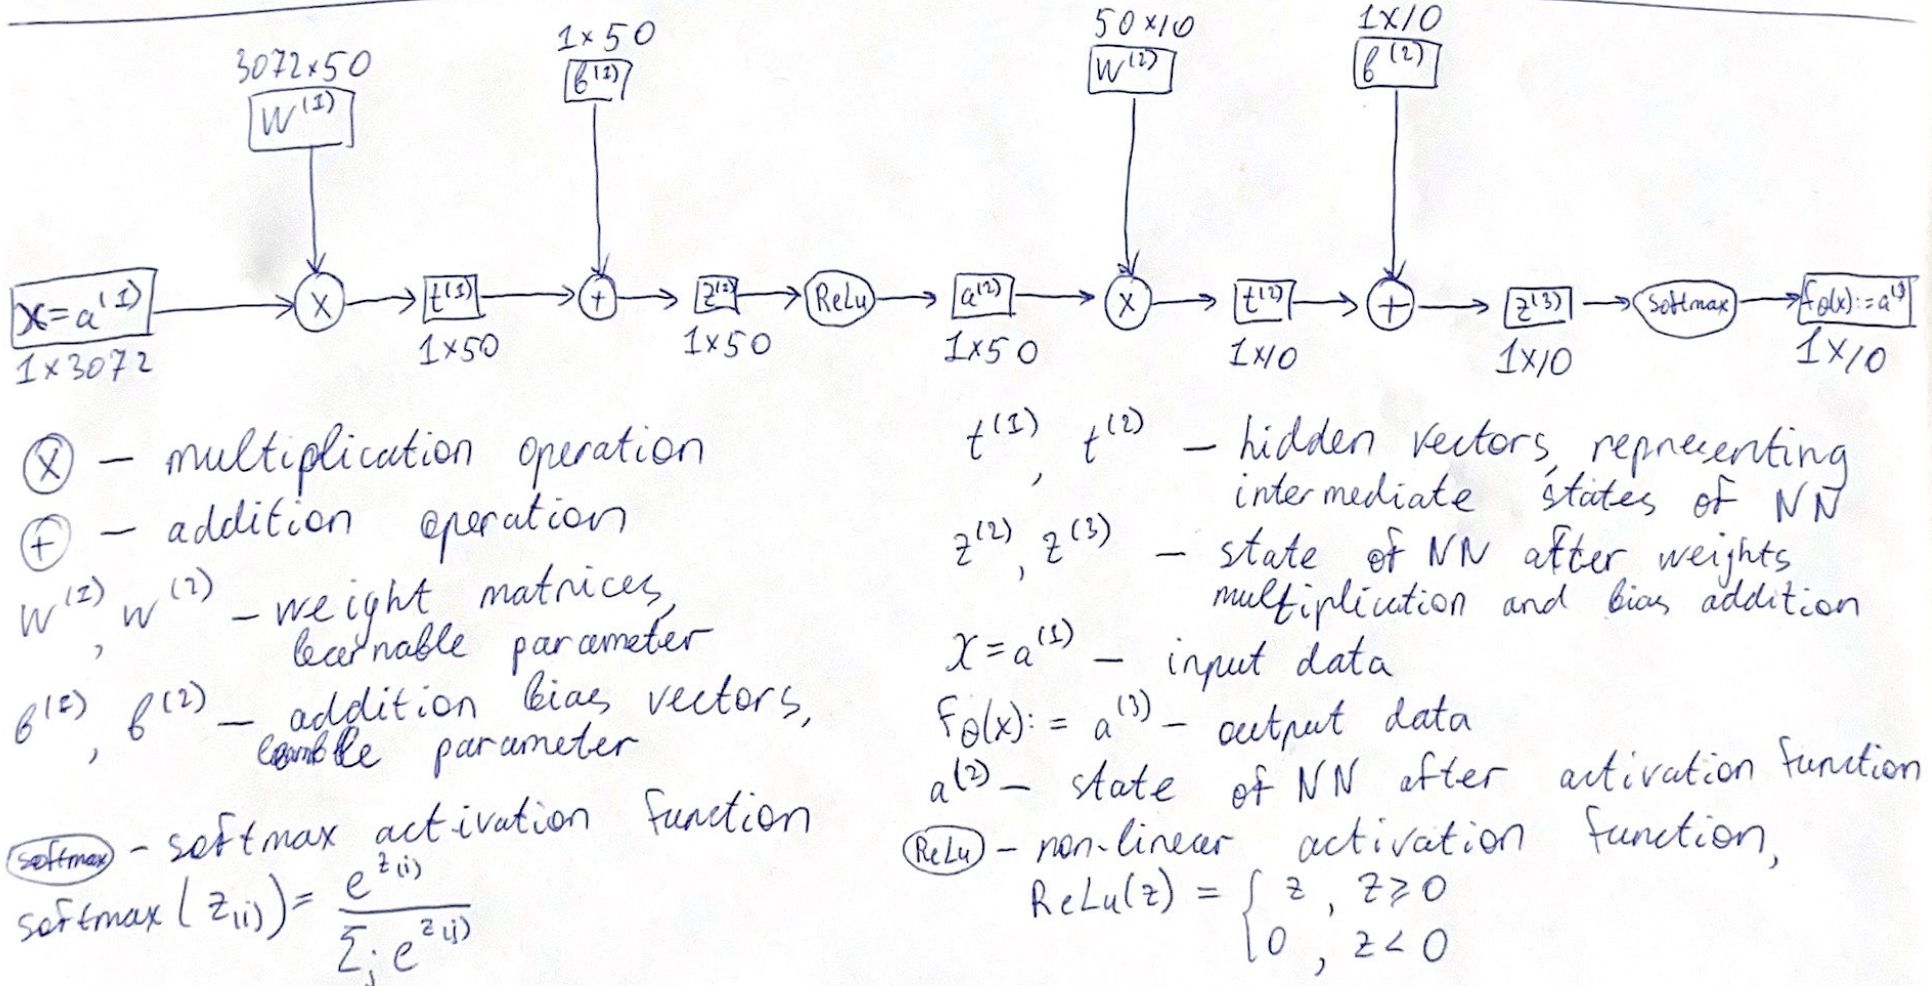 3072×50
W⁽¹⁾
1×50
b⁽¹⁾
50×10
W⁽²⁾
1×10
b⁽²⁾
x=a⁽¹⁾
1×3072
×
t⁽¹⁾
1×50
+
z⁽²⁾
1×50
ReLu
a⁽²⁾
1×50
×
t⁽²⁾
1×10
+
z⁽³⁾
1×10
softmax
fθ(x):=a⁽³⁾
1×10
× – multiplication operation
+ – addition operation
W⁽¹⁾, W⁽²⁾ – weight matrices,
learnable parameter
b⁽¹⁾, b⁽²⁾ – addition bias vectors,
parameter
softmax – softmax activation function
softmax(z₍ᵢ₎) = e^z(i) / Σj e^z(j)
t⁽¹⁾, t⁽²⁾ – hidden vectors, representing
intermediate states of NN
z⁽²⁾, z⁽³⁾ – state of NN after weights
multiplication and bias addition
x=a⁽¹⁾ – input data
fθ(x):= a⁽³⁾ – output data
a⁽²⁾ – state of NN after activation function
ReLu – non-linear activation function,
ReLu(z) = { z , z≥0
0 , z<0